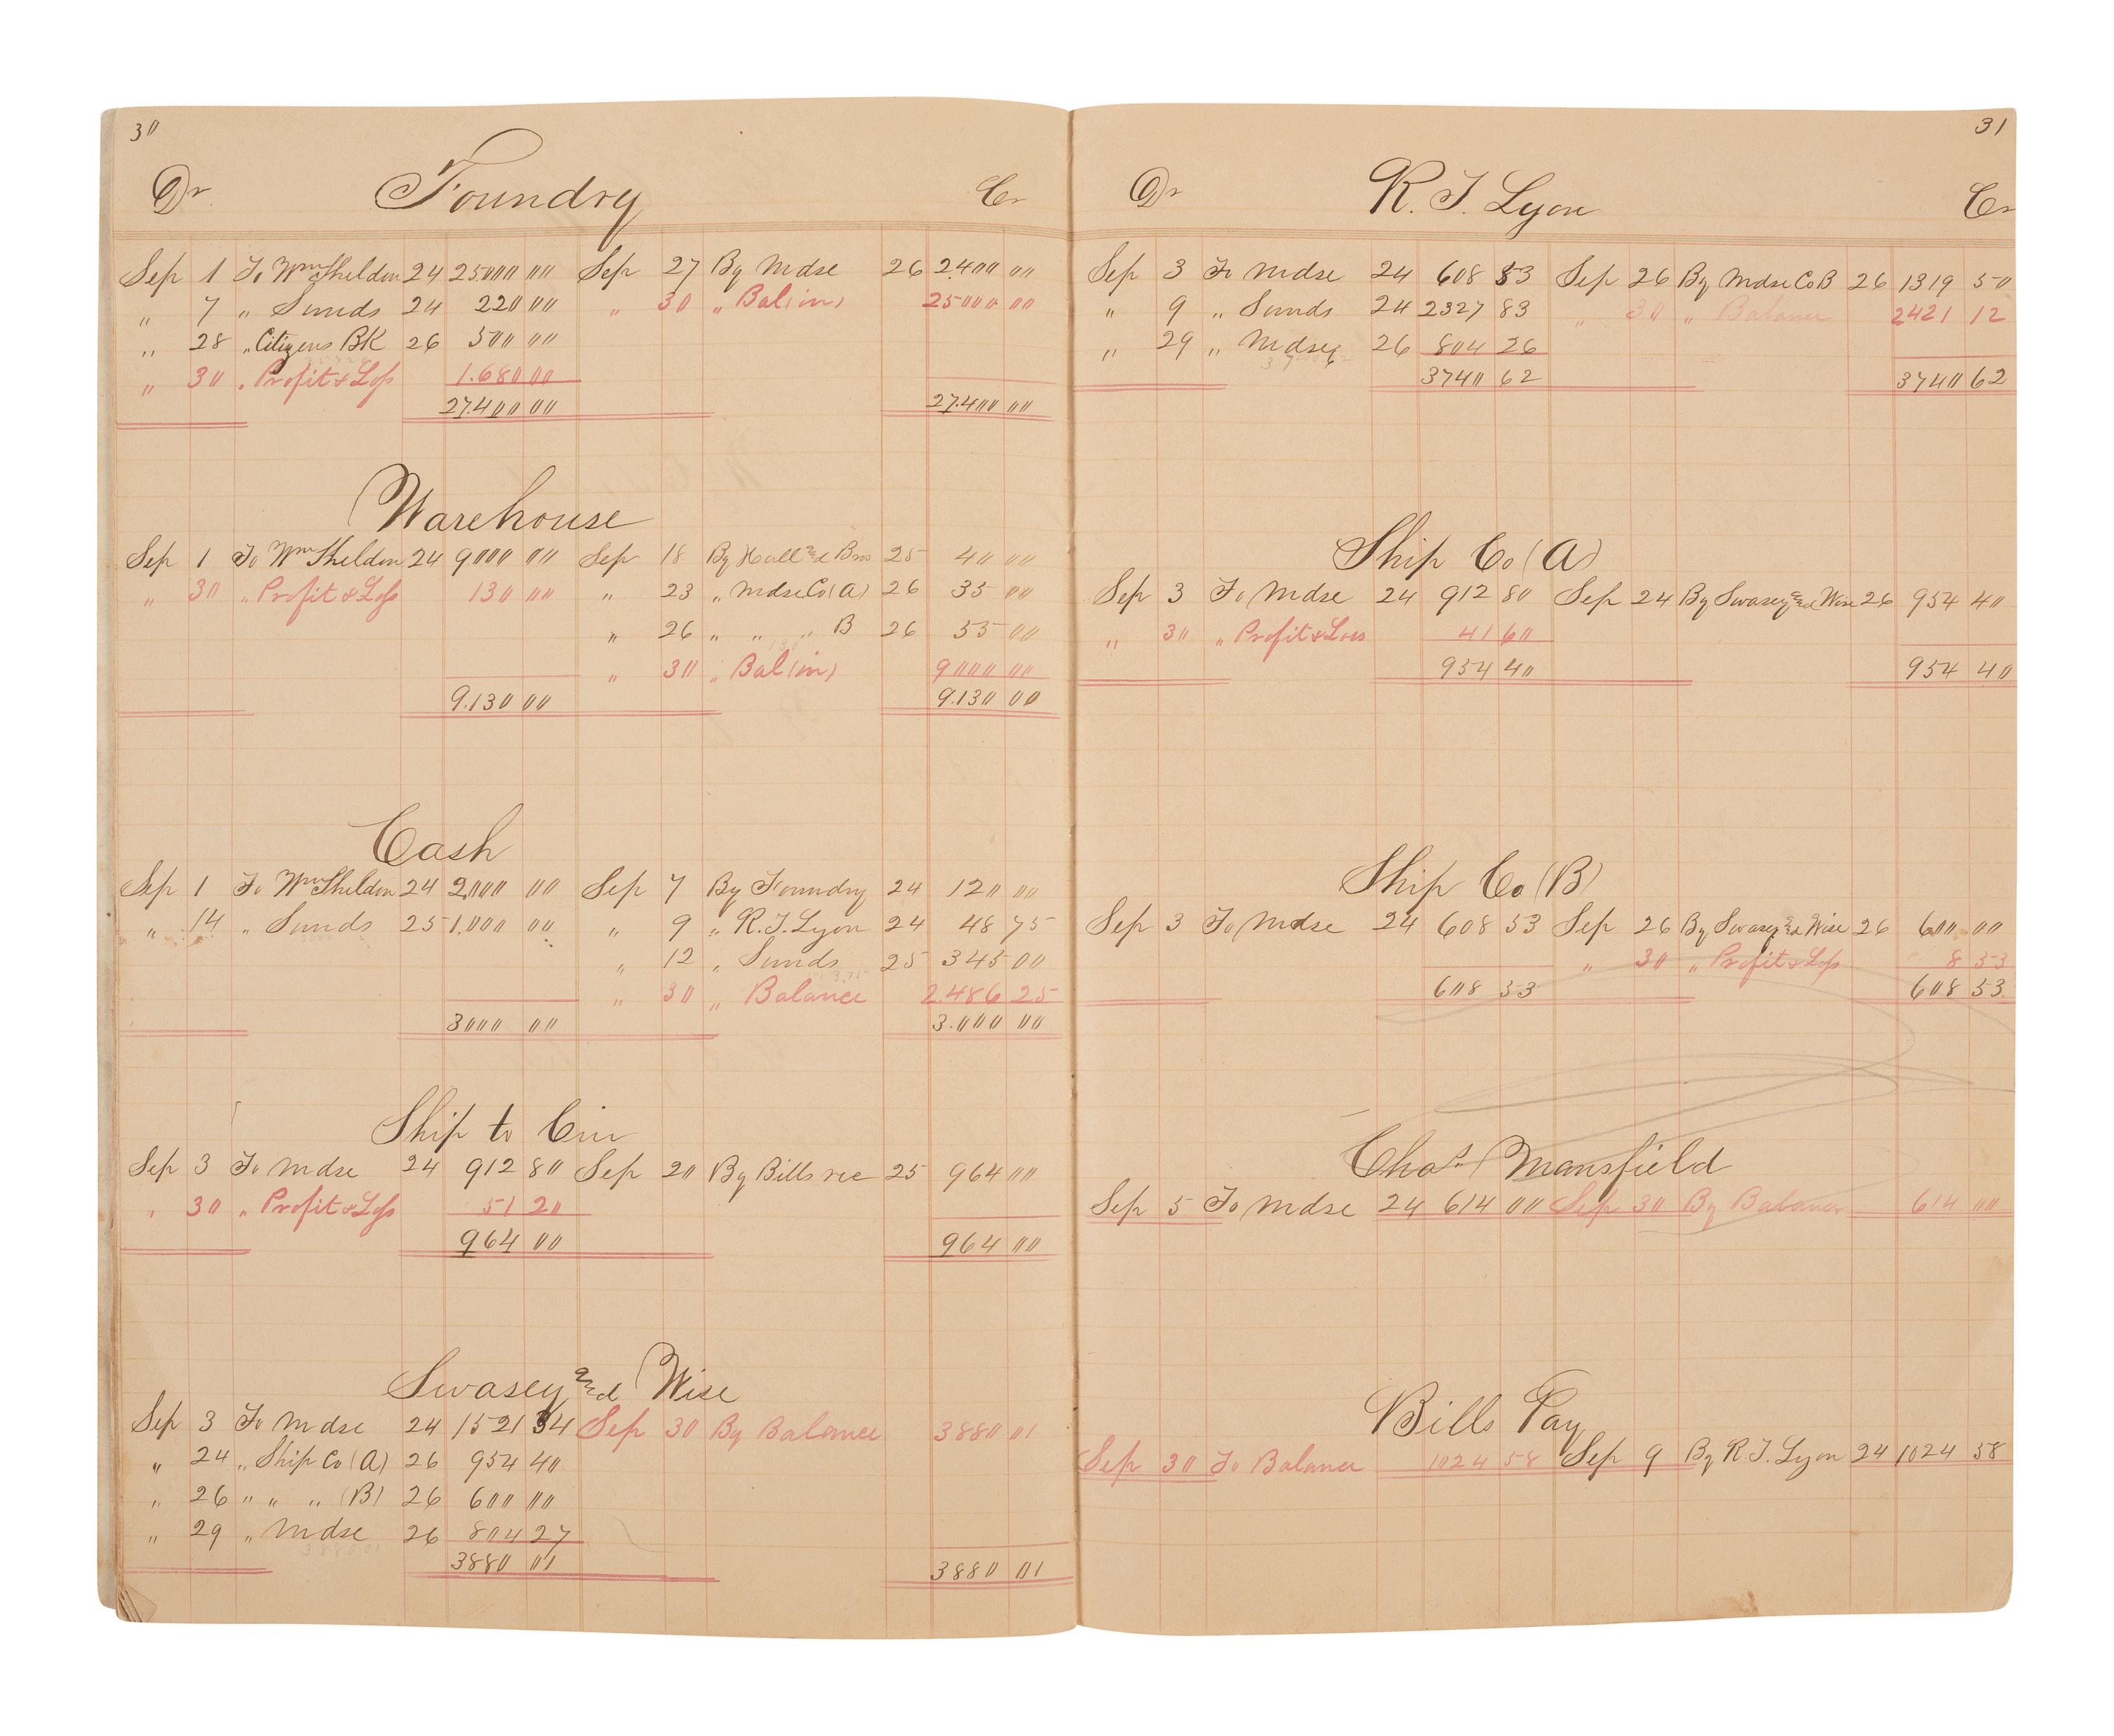 30
Dr. Foundry Cr
Sep 1 To Wm Sheldon 24 25000 00 Sep 27 By Mdse 26 2400 00
" 7 " Sunds 24 220 00 " 30 " Bal (in) 25000 00
" 28 " Citizens BK 26 500 00
" 30 " Profit & Loss 1.680 00
27.400 00 27.400 00
Warehouse
Sep 1 To Wm Sheldon 24 9000 00 Sep 18 By Hall and Bros 25 40 00
" 30 " Profit & Loss 130 00 " 23 " Mdse Co (A) 26 35 00
" 26 " " " B 26 55 00
" 30 " Bal (in) 9000 00
9.130 00 9.130 00
Cash
Sep 1 To Wm Sheldon 24 2000 00 Sep 7 By Foundry 24 120 00
" 14 " Sunds 25 1.000 00 " 9 " R. J. Lyon 24 48 75
" 12 " Sunds 25 345 00
" 30 " Balance 2.486 25
3000 00 3.000 00
Ship to Cin
Sep 3 To Mdse 24 912 80 Sep 20 By Bills rec 25 964 00
" 30 " Profit & Loss 51 20
964 00 964 00
Swasey and Wise
Sep 3 To Mdse 24 1521 34 Sep 30 By Balance 3880 01
" 24 " Ship Co (A) 26 954 40
" 26 " " " (B) 26 600 00
" 29 " Mdse 26 804 27
3880 01 3880 01
31
Dr R. J. Lyon Cr
Sep 3 To Mdse 24 608 53 Sep 26 By Mdse Co B 26 1319 50
" 9 " Sunds 24 2327 83 " 30 " Balance 2421 12
" 29 " Mdse 26 804 26
3740 62 3740 62
Ship Co (A)
Sep 3 To Mdse 24 912 80 Sep 24 By Swasey and Wise 26 954 40
" 30 " Profit & Loss 41 60
954 40 954 40
Ship Co (B)
Sep 3 To Mdse 24 608 53 Sep 26 By Swasey and Wise 26 600 00
" 30 " Profit & Loss 8 53
608 53 608 53
Chas. Mansfield
Sep 5 To Mdse 24 614 00 Sep 30 By Balance 614 00
Bills Pay
Sep 30 To Balance 1024 58 Sep 9 By R J. Lyon 24 1024 58